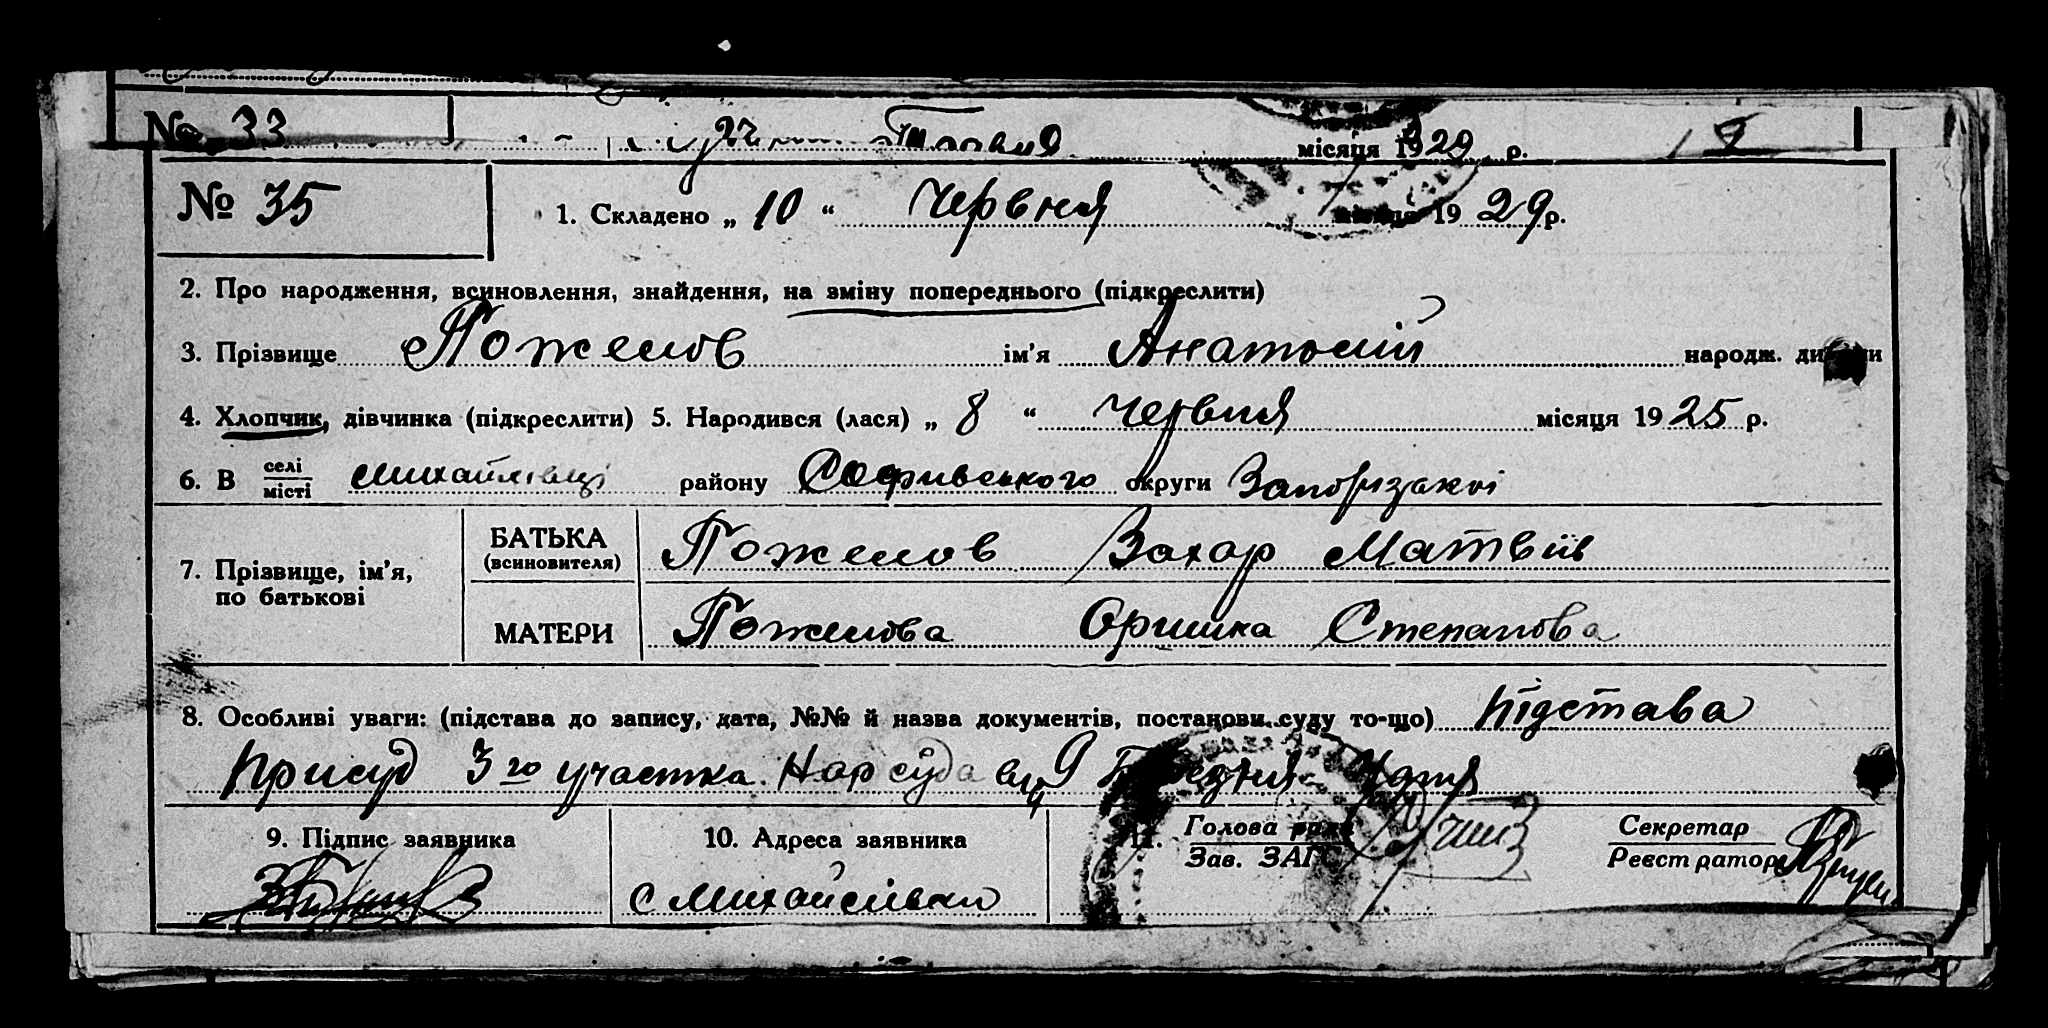 № 33 місяця 1929 р.
№ 35 1. Складено „ 10 “ Червня місяця 19 29 р.
2. Про народження, всиновлення, знайдення, на зміну попереднього (підкреслити)
3. Прізвище Пожелов ім’я Анатолій народж. дитини
4. Хлопчик, дівчинка (підкреслити) 5. Народився (лася) „ 8 “ червня місяця 19 25 р.
6. В селі місті Михайлівці району Софиевського округи Запорізькоі
7. Прізвище, ім’я, по батькові
БАТЬКА (всиновителя) Пожелов Захар Матвіїв
МАТЕРИ Пожелова Оришка Степанова
8. Особливі уваги: (підстава до запису, дата, №№ й назва документів, постанови суду то-що) підстава
присуд 3го участка Нарсуда від 9
9. Підпис заявника 10. Адреса заявника 11. Голова ради Секретар
Зав. ЗАГС Реєстратор
с Михайлівки